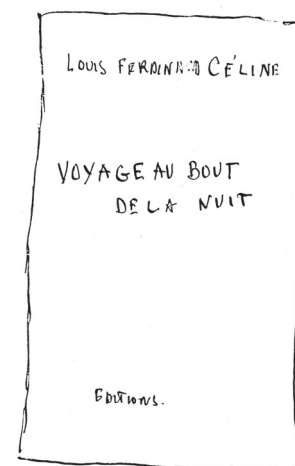 LOUIS FERDINAND CÉLINE
VOYAGE AU BOUT
DE LA NUIT
EDITIONS.